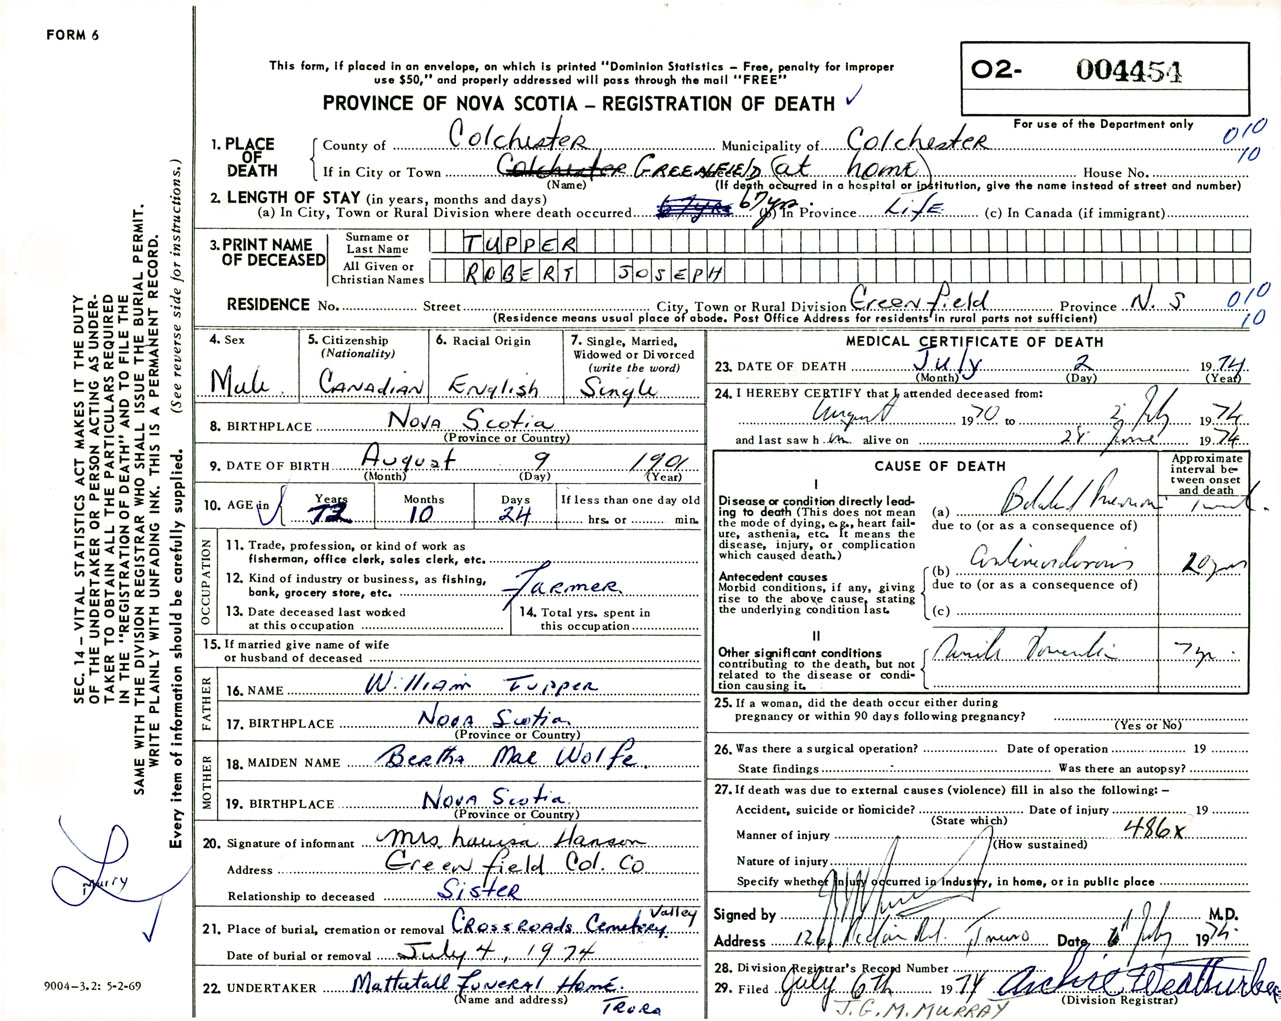 FORM 6
This form, if placed in an envelope, on which is printed "Dominion Statistics – Free, penalty for improper
use $50," and properly addressed will pass through the mail "FREE"
PROVINCE OF NOVA SCOTIA – REGISTRATION OF DEATH
O2- 004454
For use of the Department only
010
10
1. PLACE OF DEATH
County of Colchester Municipality of Colchester
If in City or Town Colchester GREENFIELD (at home) House No.
(Name) (If death occurred in a hospital or institution, give the name instead of street and number)
2. LENGTH OF STAY (in years, months and days)
(a) In City, Town or Rural Division where death occurred 67 yrs 67 yrs. (b) In Province LIFE (c) In Canada (if immigrant)
3. PRINT NAME OF DECEASED
Surname or Last Name TUPPER
All Given or Christian Names ROBERT JOSEPH
RESIDENCE No. Street City, Town or Rural Division Greenfield Province N. S
(Residence means usual place of abode. Post Office Address for residents in rural parts not sufficient)
010
10
4. Sex Male
5. Citizenship (Nationality) CANADIAN
6. Racial Origin English
7. Single, Married, Widowed or Divorced (write the word) Single
8. BIRTHPLACE Nova Scotia
(Province or Country)
9. DATE OF BIRTH August 9 1901
(Month) (Day) (Year)
10. AGE in Years 72 Months 10 Days 24 If less than one day old hrs. or min.
OCCUPATION
11. Trade, profession, or kind of work as
fisherman, office clerk, sales clerk, etc.
12. Kind of industry or business, as fishing,
bank, grocery store, etc. Farmer
13. Date deceased last worked
at this occupation
14. Total yrs. spent in
this occupation
15. If married give name of wife
or husband of deceased
FATHER
16. NAME William Tupper
17. BIRTHPLACE Nova Scotia
(Province or Country)
MOTHER
18. MAIDEN NAME Bertha Mae Wolfe
19. BIRTHPLACE Nova Scotia
(Province or Country)
20. Signature of informant Mrs Louisa Hanson
Address Greenfield Col. Co
Relationship to deceased Sister
21. Place of burial, cremation or removal CROSSROADS Cemetery Valley
Date of burial or removal July 4, 1974
22. UNDERTAKER Mattatall Funeral Home.
(Name and address) Truro
MEDICAL CERTIFICATE OF DEATH
23. DATE OF DEATH July 2 1974
(Month) (Day) (Year)
24. I HEREBY CERTIFY that I attended deceased from:
August 1970 to 2 July 1974
and last saw h im alive on 28 June 1974
CAUSE OF DEATH
Approximate interval between onset and death
I
Disease or condition directly lead-
ing to death (This does not mean
the mode of dying, e.g., heart fail-
ure, asthenia, etc. It means the
disease, injury, or complication
which caused death.)
(a) 1 week.
due to (or as a consequence of)
Antecedent causes
Morbid conditions, if any, giving
rise to the above cause, stating
the underlying condition last.
(b) 20 yrs
due to (or as a consequence of)
(c)
II
Other significant conditions
contributing to the death, but not
related to the disease or condi-
tion causing it.
Senile Dementia 7 yr.
25. If a woman, did the death occur either during
pregnancy or within 90 days following pregnancy?
(Yes or No)
26. Was there a surgical operation? Date of operation 19
State findings Was there an autopsy?
27. If death was due to external causes (violence) fill in also the following: –
Accident, suicide or homicide? Date of injury 19
(State which)
Manner of injury 486x
(How sustained)
Nature of injury
Specify whether injury occurred in industry, in home, or in public place
Signed by M.D.
Address Truro Date July 1974
28. Division Registrar's Record Number
29. Filed July 6th 1974 Archie Weatherbee
(Division Registrar)
J. G. M. MURRAY
SEC. 14 – VITAL STATISTICS ACT MAKES IT THE DUTY
OF THE UNDERTAKER OR PERSON ACTING AS UNDER-
TAKER TO OBTAIN ALL THE PARTICULARS REQUIRED
IN THE "REGISTRATION OF DEATH" AND TO FILE THE
SAME WITH THE DIVISION REGISTRAR WHO SHALL ISSUE THE BURIAL PERMIT.
WRITE PLAINLY WITH UNFADING INK. THIS IS A PERMANENT RECORD.
Every item of information should be carefully supplied. (See reverse side for instructions.)
9004-3.2: 5-2-69